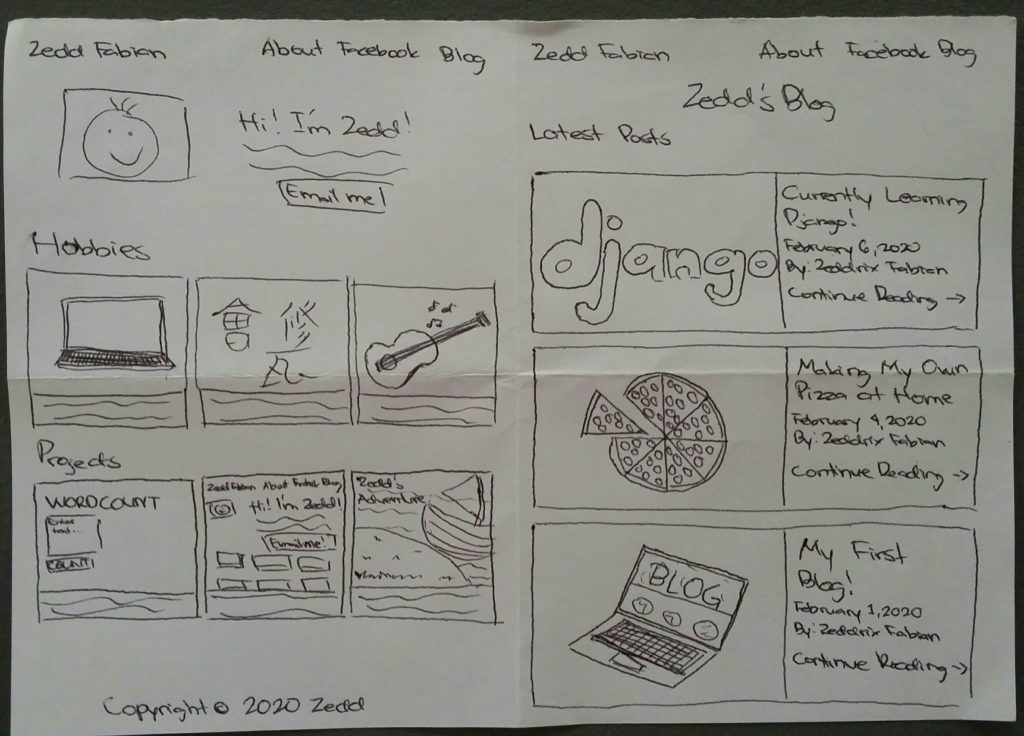 Zedd Fabian About Facebook Blog
Hi! I'm Zedd!
Email me!
Hobbies
會
Projects
WORDCOUNT
Enter
text...
COUNT
Zedd Fabian About Facebook Blog
Hi! I'm Zedd!
Email me!
Zedd's
Adventure
Copyright © 2020 Zedd
Zedd Fabian About Facebook Blog
Zedd's Blog
Latest Posts
django
Currently Learning
Django!
February 6, 2020
By: Zeddrix Fabian
Continue Reading →
Making My Own
Pizza at Home
February 4, 2020
By: Zeddrix Fabian
Continue Reading →
BLOG
My First
Blog!
February 1, 2020
By: Zeddrix Fabian
Continue Reading →